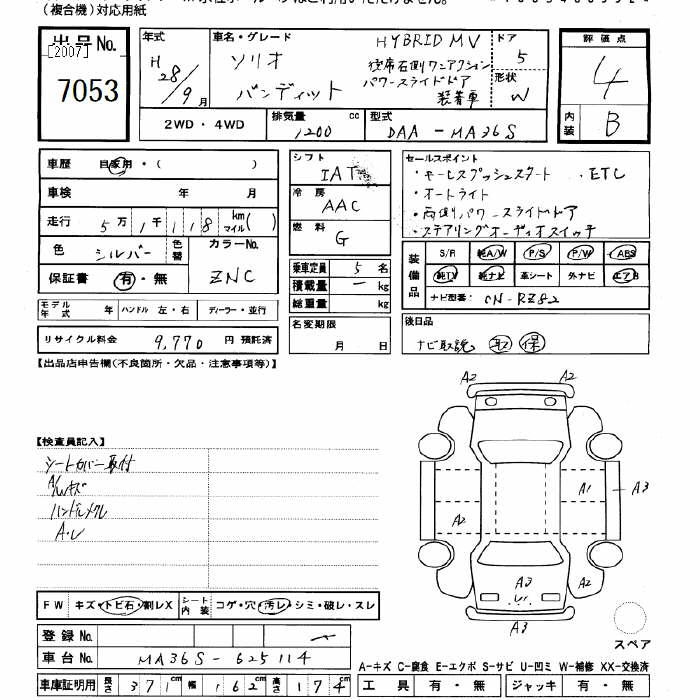 (複合機)対応用紙
出品No.
[2007]
7053
年式
H28/9月
車名・グレード
ソリオ
バンディット
HYBRID MV
後席右側ワンアクション
パワースライドドア
装着車
ドア
5
形状
W
評価点
4
内装
B
2WD・4WD
排気量
1200 cc
型式
DAA-MA36S
車歴 自家用・( )
車検 年 月
走行 5万1千118 km マイル( )
色 シルバー 色替
カラーNo.
ZNC
保証書 有・無
シフト
IAT
冷房
AAC
燃料
G
乗車定員 5 名
積載量 ー kg
総重量 kg
セールスポイント
・キーレスプッシュスタート ・ETC
・オートライト
・両側パワースライドドア
・ステアリングオーディオスイッチ
装備品
S/R 純A/W P/S P/W ABS
純TV 純ナビ 革シート 外ナビ エアB
ナビ型番: CN-RZ82
モデル年式 年 ハンドル 左・右 ディーラー・並行
リサイクル料金 9,770 円 預託済
名変期限
月 日
後日品
ナビ取説 取 保
【出品店申告欄(不良箇所・欠品・注意事項等)】
【検査員記入】
シートカバー取付
A/Wキズ
ハンドルスレ
A・U
A2 A2
A1 A3
A2
A2
A3
U1
A3
スペア
FW キズ・トビ石・割レX
シート内装 コゲ・穴・汚レ・シミ・破レ・スレ
登録No. ー
車台No. MA36S-625114
車庫証明用 長さ 371cm 幅 162cm 高さ 174cm
A-キズ C-腐食 E-エクボ S-サビ U-凹ミ W-補修 XX-交換済
工具 有・無 ジャッキ 有・無